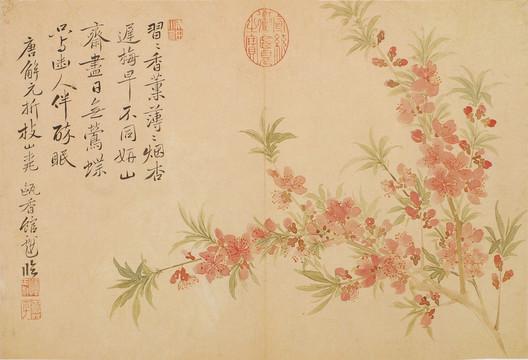 習〻香薰薄〻烟杏
遲梅早不同妍山
齋盡日無鶯蝶
只與幽人伴醉眠
唐解元折枝山桃 甌香館臨